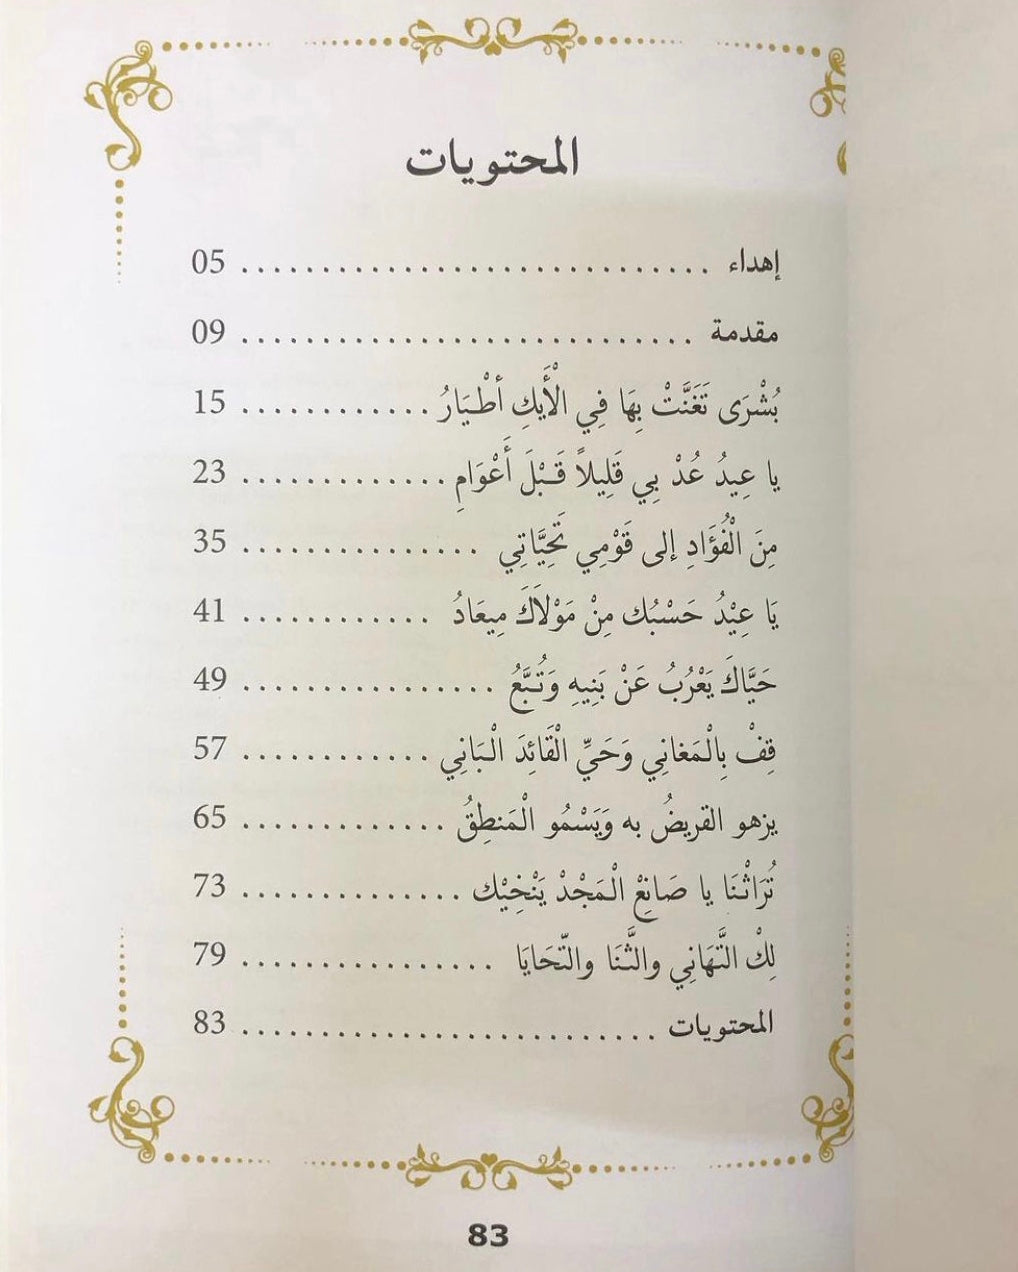 المحتويات
إهداء ............................. 05
مقدمة ............................ 09
بُشْرَى تَغَنَّتْ بِهَا فِي الْأَيكِ أطْيَارُ ............ 15
يا عِيدُ عُدْ بِي قَلِيلاً قَبْلَ أَعْوَامِ ............. 23
مِنَ الْفُؤَادِ إلى قَوْمِي تَحِيَّاتِي ............... 35
يَا عِيْدُ حَسْبُك مِنْ مَوْلَاكَ مِيعَادُ ............ 41
حَيَّاكَ يَعْرُبُ عَنْ بَنِيهِ وَتُبَّعُ ................ 49
قِفْ بِالْمَغانِي وَحَيِّ الْقَائِدَ الْبَانِي ............ 57
يزهو القريضُ به وَيَسْمُو الْمَنطِقُ ............. 65
تُرَاثْنَا يا صَانِعْ الْمَجْدْ يَنْخِيْك .............. 73
لِكْ التَّهَانِي والثَّنَا والتّحَايَا ................ 79
المحتويات .......................... 83
83